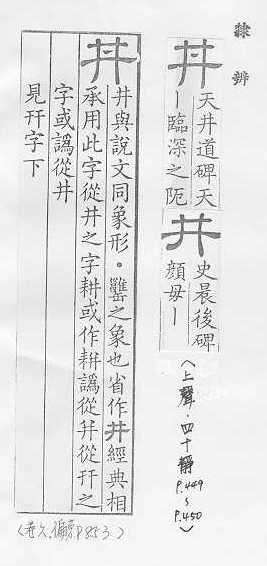 隸辨
丼 天井道碑天
｜臨深之阨
井 史晨後碑
顏母｜
(上聲·四十靜
P.449
~
P.450)
丼 丼與說文同象形·罋之象也省作井經典相
承用此字從丼之字耕或作耕譌從幵從幵之
字或譌從井
見幵字下
(卷六、偏旁P.853.)